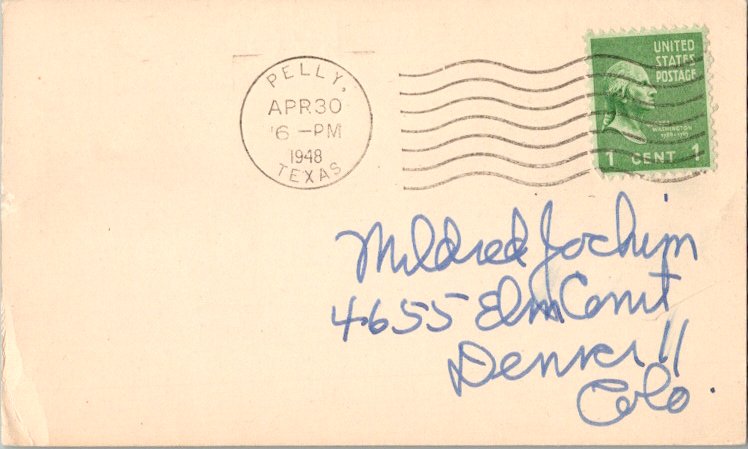 PELLY,
APR 30
6 -PM
1948
TEXAS
UNITED
STATES
POSTAGE
WASHINGTON
1 CENT 1
Mildred Jochim
4655 Elm Court
Denver 11
Colo.